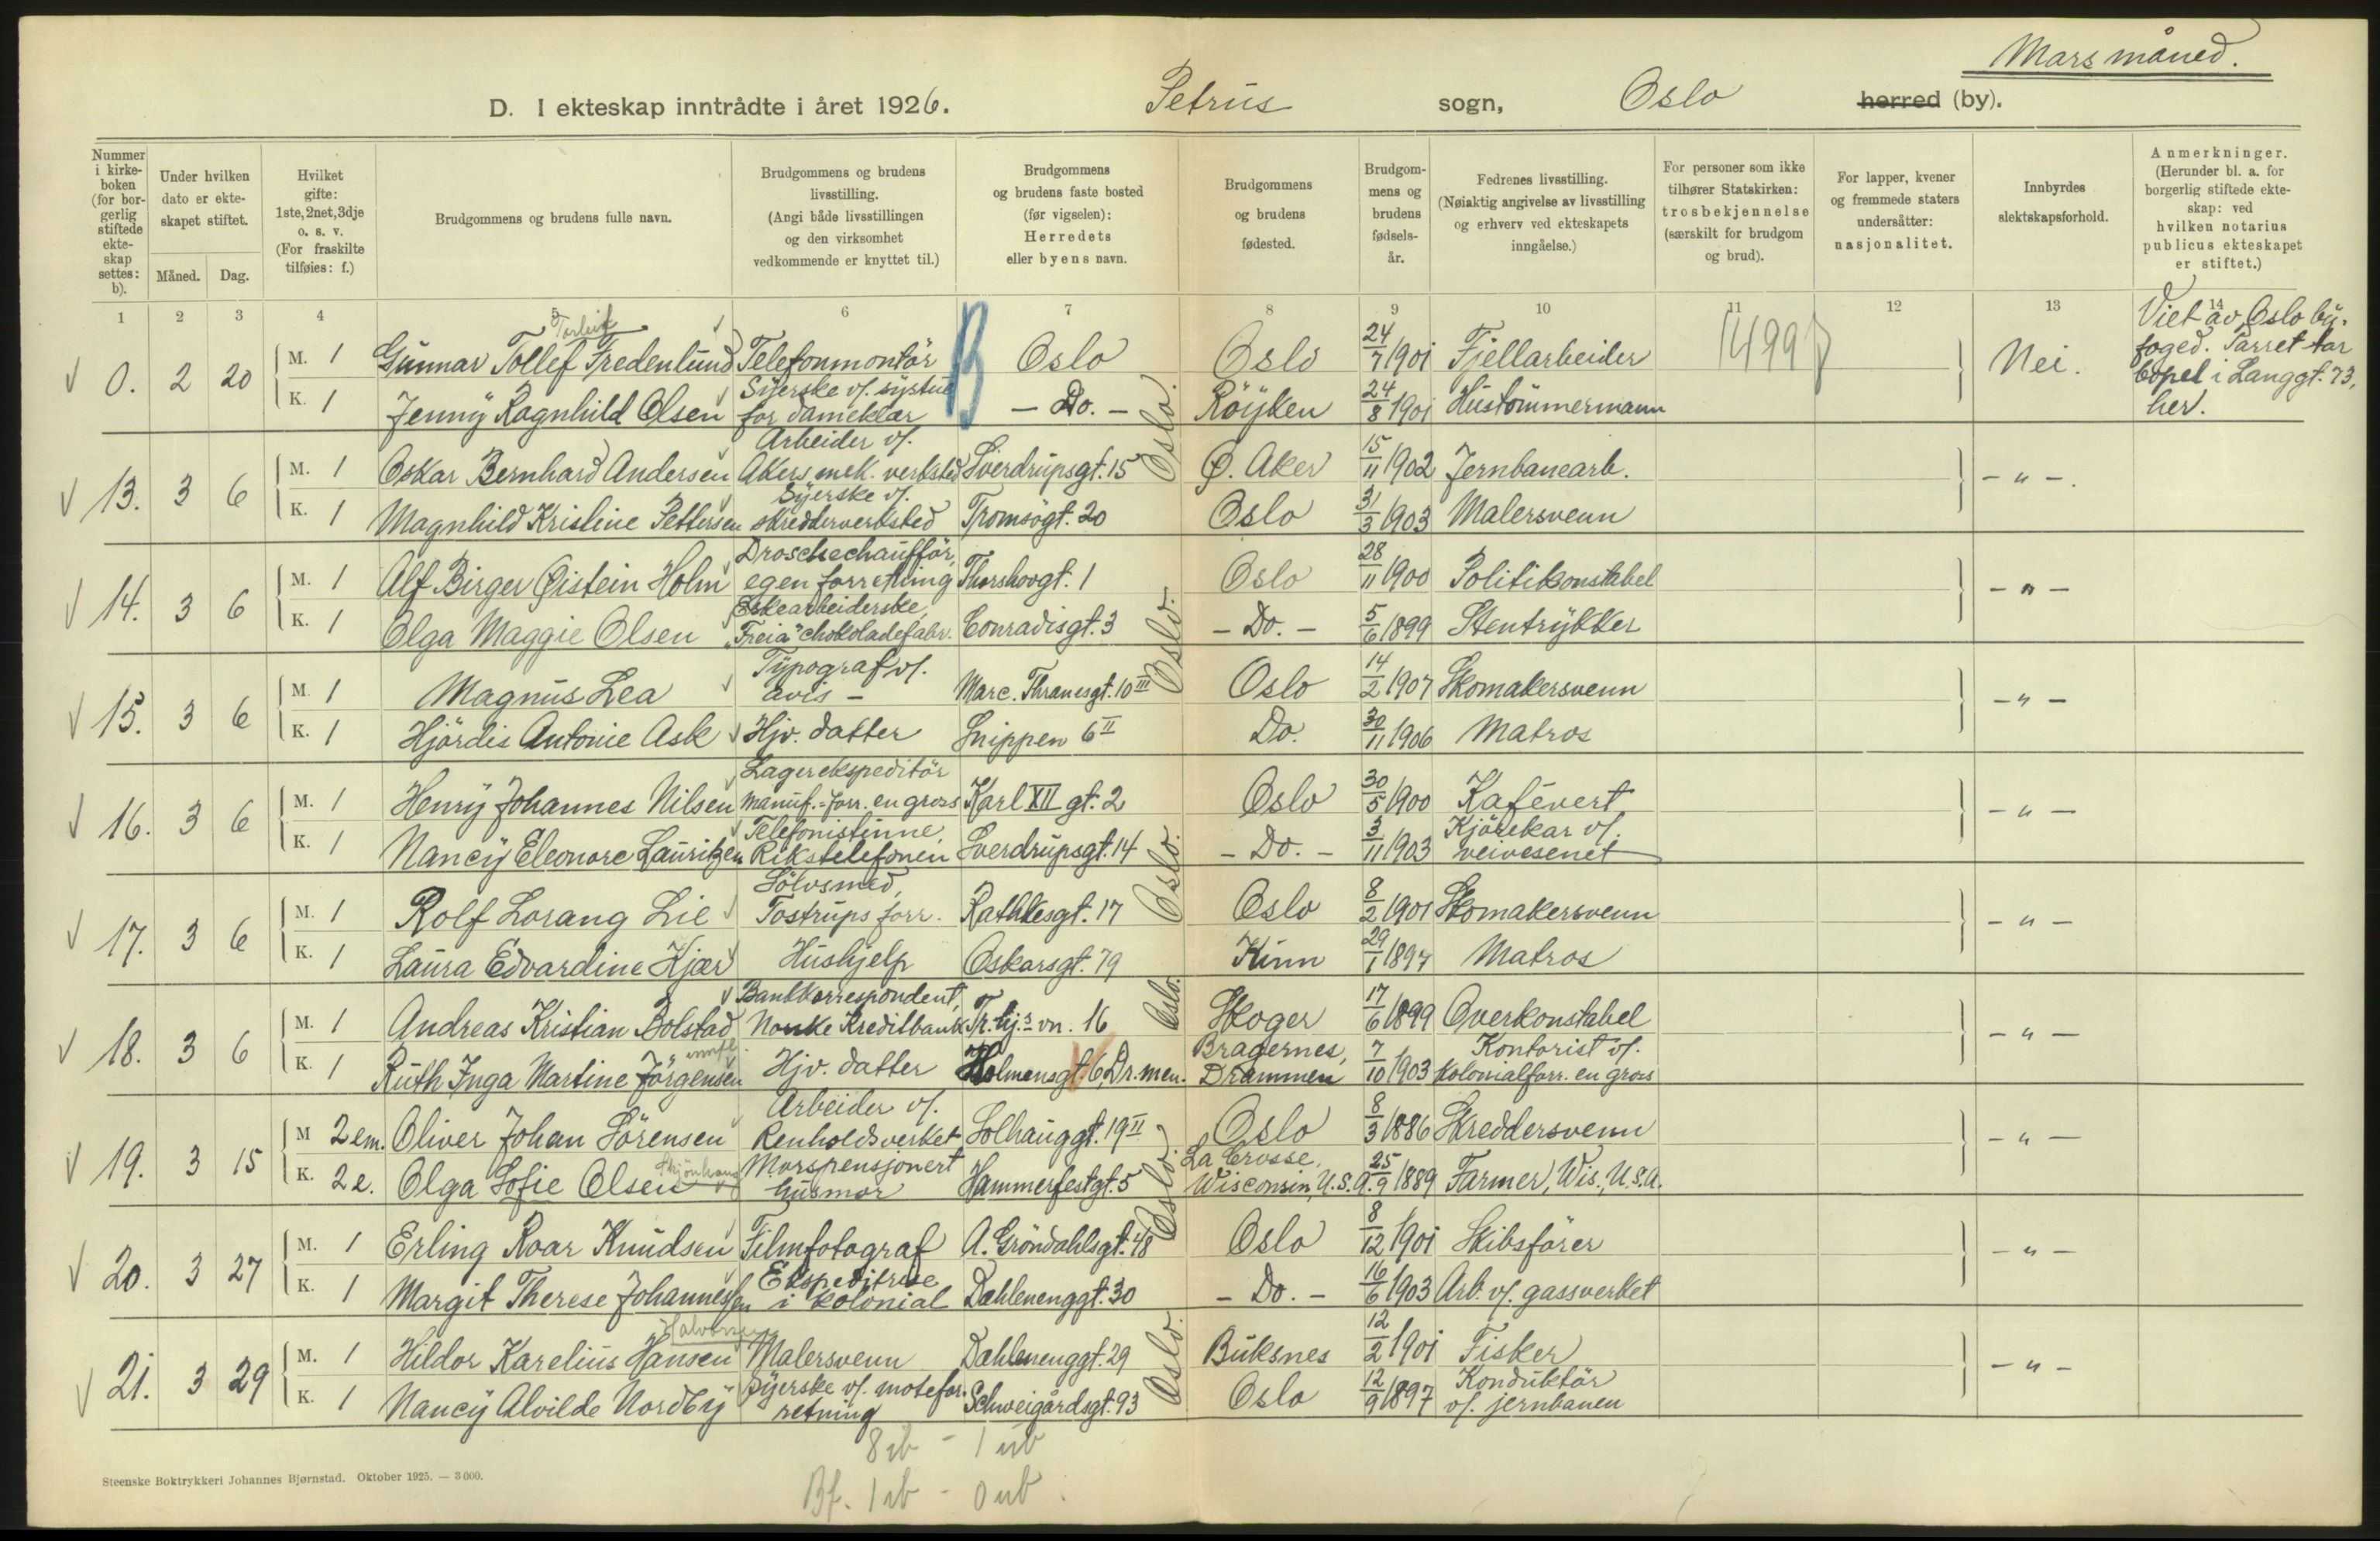 Mars måned.
D. I ekteskap inntrådte i året 1926. Petrus sogn, Oslo herred (by).
Nummer i kirke-boken (for bor-gerlig stiftede ekte-skap settes: b).
Under hvilken dato er ekte-skapet stiftet.
Måned. Dag.
Hvilket gifte: 1ste, 2net, 3dje o. s. v. (For fraskilte tilføies: f.)
Brudgommens og brudens fulle navn.
Brudgommens og brudens livsstilling. (Angi både livsstillingen og den virksomhet vedkommende er knyttet til.)
Brudgommens og brudens faste bosted (før vigselen): Herredets eller byens navn.
Brudgommens og brudens fødested.
Brudgom-mens og brudens fødsels-år.
Fedrenes livsstilling. (Nøiaktig angivelse av livsstilling og erhverv ved ekteskapets inngåelse.)
For personer som ikke tilhører Statskirken: trosbekjennelse (særskilt for brudgom og brud).
For lapper, kvener og fremmede staters undersåtter: nasjonalitet.
Innbyrdes slektskapsforhold.
Anmerkninger. (Herunder bl. a. for borgerlig stiftede ekte-skap: ved hvilken notarius publicus ekteskapet er stiftet.)
1 2 3 4 5 6 7 8 9 10 11 12 13 14
Torleif
0. 2 20 M. 1 Gunnar Tollef Fredenlund Telefonmontör B Oslo Oslo 24/7 1901 Fjellarbeider 1499 Nei. Viet av Oslo by-foged. Parret har bopel i Langgt. 73, her.
K. 1 Jenny Ragnhild Olsen Syerske v/. systue for dameklær - Do. - Röyken 24/8 1901 Hustömmermann
13. 3 6 M. 1 Oskar Bernhard Andersen Arbeider v/. Akers mek. verksted Sverdrupsgt. 15 Oslo. Ø. Aker 15/11 1902 Jernbanearb. - " -.
K. 1 Magnhild Kristine Pettersen Syerske v/. skredderverksted Tromsögt. 20 Oslo 31/3 1903 Malersvenn
14. 3 6 M. 1 Alf Birger Øistein Holm Droschechaufför, egen forretning Thorshovgt. 1 Oslo 28/11 1900 Politikonstabel - " -
K. 1 Olga Maggie Olsen Eskearbeiderske, "Freia" chokoladefabr. Conradisgt. 3 Oslo. - Do. - 5/6 1899 Stentrykker
15. 3 6 M. 1 Magnus Lea Typograf v/. avis - Marc. Thranesgt. 10 III Oslo 14/2 1907 Skomakersvenn - " -
K. 1 Hjördis Antonie Ask Hjv. datter Snippen 6 II Do. 30/11 1906 Matros
16. 3 6 M. 1 Henry Johannes Nilsen Lagerekspeditör manuf.-forr. en gros Karl XII gt. 2 Oslo 30/5 1900 Kafévert - " -
K. 1 Nancy Eleonore Lauritzen Telefonistinne, Rikstelefonen Sverdrupsgt. 14 Oslo. - Do. - 3/11 1903 Kjörekar v/. veivesenet
17. 3 6 M. 1 Rolf Lorang Lie Sölvsmed, Tostrups forr. Rathkesgt. 17 Oslo 8/2 1901 Skomakersvenn - " -
K. 1 Laura Edvardine Kjær Hushjelp Oskarsgt. 79 Kinn 29/1 1897 Matros
18. 3 6 M. 1 Andreas Kristian Bolstad Bankkorrespondent, Norske Kreditbank Tr. hj.s vn. 16 Oslo. Skoger 17/6 1899 Overkonstabel - " -
K. 1 Ruth Inga Martine Jörgensen Hjv. datter Holmensgt. 6, Dr.men. Bragernes, Drammen 7/10 1903 Kontorist v/. kolonialforr. en gros
19. 3 15 M 2 em. Oliver Johan Sörensen Arbeider v/. Renholdsverket Solhauggt. 19 II Oslo 8/3 1886 Skreddersvenn - " -
K. 2 e. Olga Sofie Olsen Skjönhaug Morspensjonert husmor Hammerfestgt. 5 Oslo. La Crosse, Wisconsin, U.S.A. 25/9 1889 Farmer, Wis., U.S.A.
20. 3 27 M. 1 Erling Roar Knudsen Filmfotograf A. Gröndahlsgt. 48 Oslo 8/12 1901 Skibsförer - " -
K. 1 Margit Therese Johannessen Ekspeditrise i kolonial Dæhlenenggt. 30 - Do. - 16/6 1903 Arb. v/. gassverket
Halvorsen
21. 3 29 M. 1 Hildor Karelius Hansen Malersvenn Dæhlenenggt. 29 Oslo. Buksnes 12/2 1901 Fisker - " -
K. 1 Nancy Alvilde Nordby Syerske v/. motefor-retning Schweigårdsgt. 93 Oslo 12/9 1897 Konduktör v/. jernbanen
8 ib - 1 ub
Bf. 1 ib - 0 ub.
Steenske Boktrykkeri Johannes Bjørnstad. Oktober 1925. — 3 000.